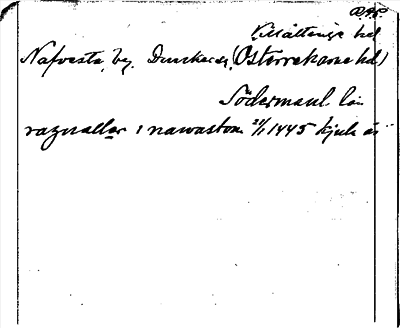 D.A.
Villåttinge hd
Nafvesta, by, Dunkers s, (Österrekarne hd)
Södermanl. län
ragnallar i nawastom 21/1 1445 kjula